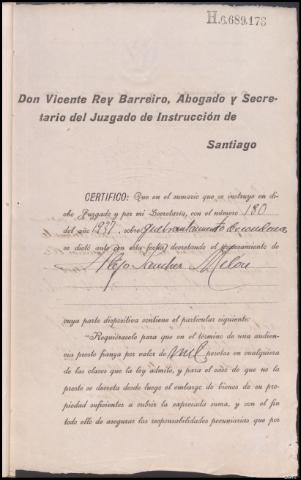 H.6.689.178
Don Vicente Rey Barreiro, Abogado y Secre-
tario del Juzgado de Instrucción de
Santiago
CERTIFICO: Que en el sumario que se instruye en di-
cho Juzgado y por mi Secretaría, con el número 180
del año 1937 sobre quebrantamiento de condena,
se dictó auto con esta fecha decretando el procesamiento de
Alejo Sanchez
cuya parte dispositiva contiene el particular siguiente:
«Requiérasele para que en el término de una audien-
cia preste fianza por valor de mil pesetas en cualquiera
de las clases que la ley admite, y para el caso de que no la
preste se decreta desde luego el embargo de bienes de su pro-
piedad suficientes a cubrir la expresada suma, y con el fin
todo ello de asegurar las responsabilidades pecuniarias que por